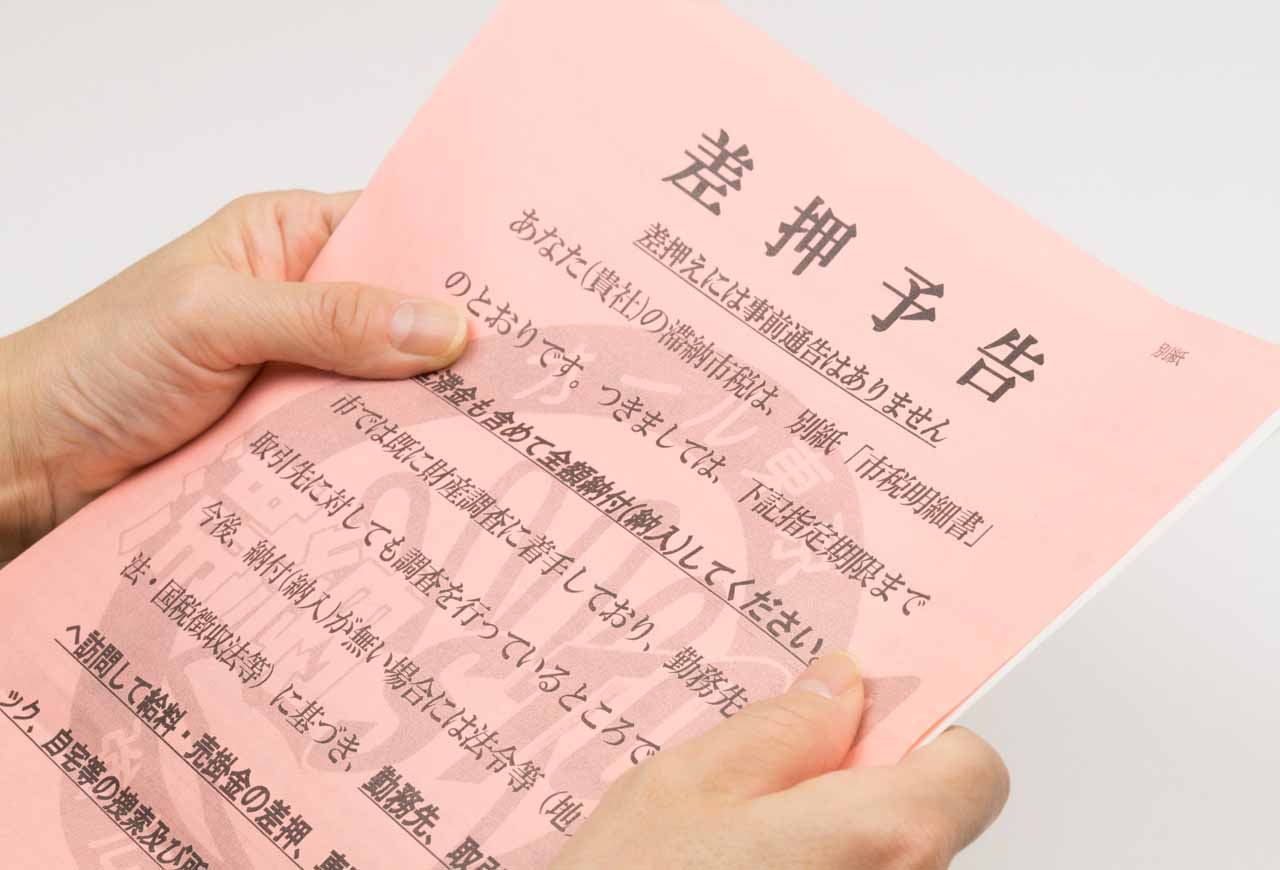 別紙
差押予告
差押えには事前通告はありません
あなた(貴社)の滞納市税は、別紙「市税明細書」
のとおりです。つきましては、下記指定期限まで
滞金も含めて全額納付(納入)してください。
市では既に財産調査に着手しており、勤務先
取引先に対しても調査を行っているところで
今後、納付(納入)が無い場合には法令等（地
法・国税徴収法等）に基づき、勤務先、取引
へ訪問して給料・売掛金の差押、
ック、自宅等の捜索及び